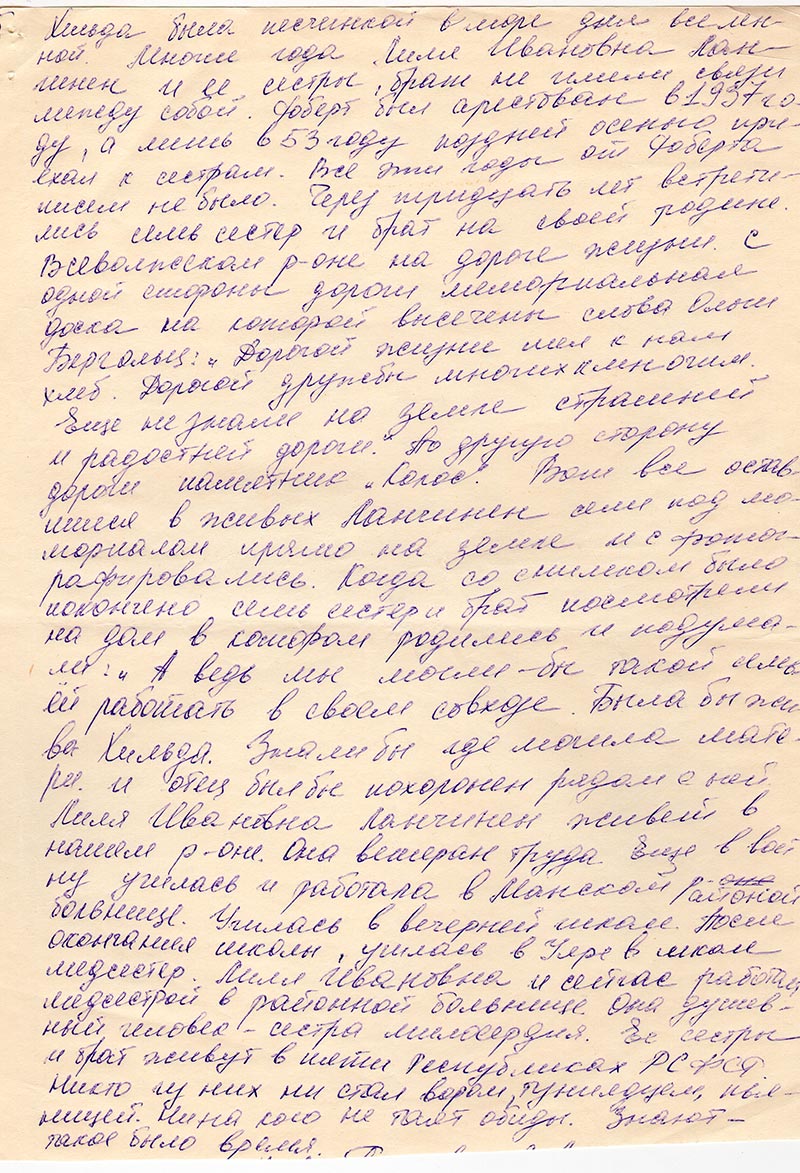 Хильда была песчинкой в море для вселен-
ной. Многие года Лиля Ивановна Лан-
чинен и ее сестры, брат не имели связи
между собой. Роберт был арестован в 1937 го-
ду, а лишь в 53 году поздней осенью при-
ехал к сестрам. Все эти годы от Роберта
писем не было. Через тридцать лет встрети-
лись семь сестер и брат на своей родине.
Всеволжском р-оне на дороге жизни. С
одной стороны дороги мемориальная
доска на которой высечены слова Ольги
Бергольц: „Дорогой жизни шел к нам
хлеб. Дорогой дружбы многих к многим.
Еще не знали на земле страшней
и радостней дороги." По другую сторону
дороги памятник „Колос". Вот все остав-
шиеся в живых Ланчинен сели под ме-
мориалом прямо на земле и сфотог-
рафировались. Когда со снимком было
покончено семь сестер и брат посмотрели
на дом в котором родились и подума-
ли: „А ведь мы могли-бы такой семь
ёй работать в своем совхозе. Была бы жи
ва Хильда. Знали бы где могила мате-
ри. и отец был бы похоронен рядом с ней
Лиля Ивановна Ланчинен живет в
нашем р-оне. Она ветеран труда. Еще в вой
ну училась и работала в Манской районой
больнице. Училась в вечерней школе. После
окончания школы, училась в Уяре в школе
медсестер. Лиля Ивановна и сейчас работает
медсестрой в районной больнице. Она душев-
ный человек - сестра милосердия. Ее сестры
и брат живут в пяти Республиках РСФСР.
Никто из них ни стал вором, тунеядцем, пья-
ницей. Ни на кого не таят обиды. Знают -
такое было время.